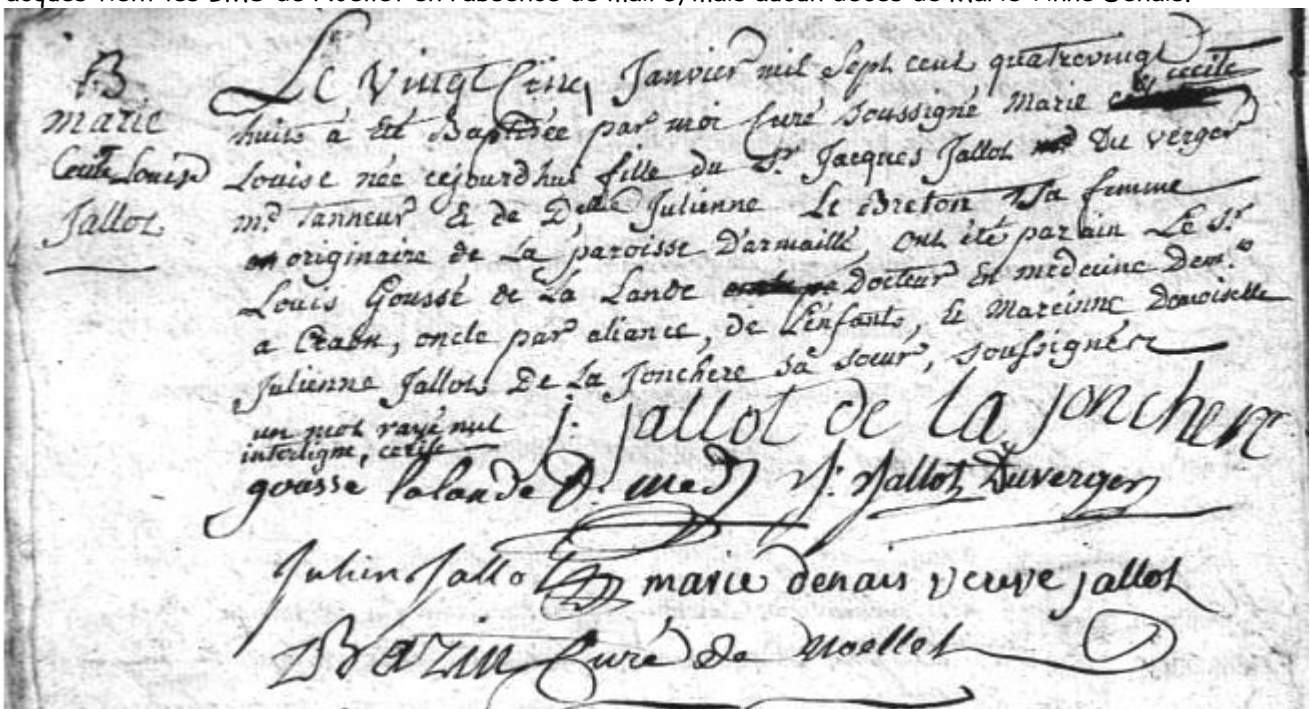 acques tient les BMS de Noëllet en l'absence de maire, mais aucun décès de Marie-Anne Denais.
B
marie
Cecile Louise
Jallot
Le Vingt Cinq Janvier mil Sept cent quatrevingt
huit a été Baptisée par moi Curé soussigné Marie cecile
Louise née cejourd'hui fille du Sr. Jacques Jallot Du verger
md Tanneur & de Delle Julienne Le Breton Sa femme
originaire de La paroisse D'armaillé, ont été parain Le Sr.
Louis Goussé de La Lande Docteur En médecine Demt
a Craon, oncle par aliance, de L'enfant, & Mareinne Demoiselle
Julienne Jallot De La Jonchere sa soeur, soussignés
un mot rayé nul
interligne, cecile
J. Jallot de la Jonchere
gousse lalande D. med J. Jallot Duverger
Julien Jallot marie denais veuve jallot
Bazin Curé de Noellet